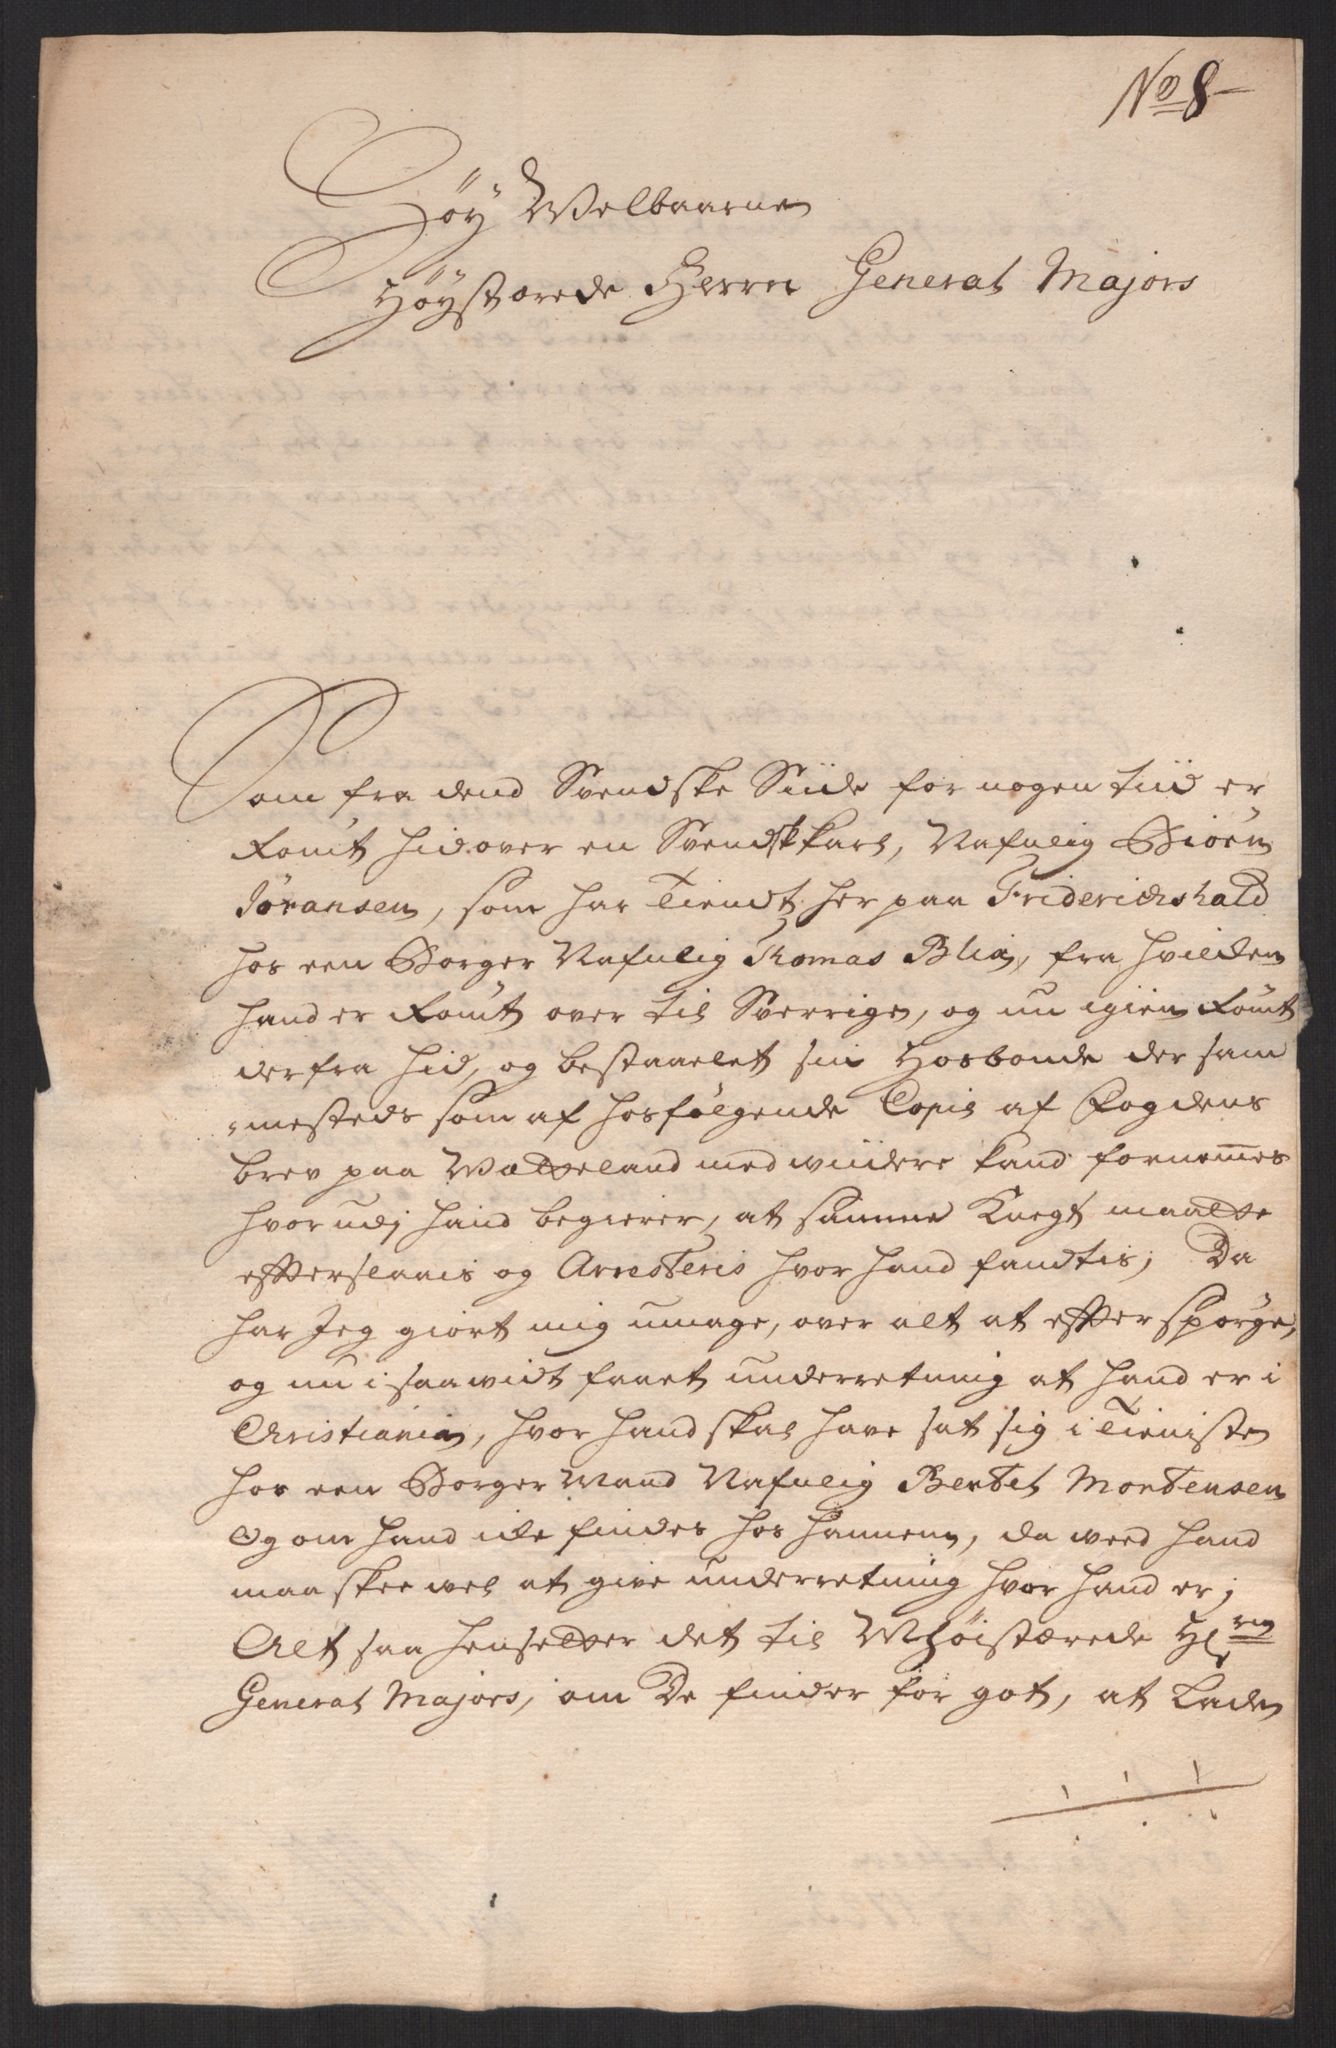 No 8
Høy Welbaarne
Høystærede Herre General Majors
Som fra dend Svendske Siide for nogen tiid er
komt hidover en Svensk karl, Nafnlig Biörn
Jöransen, som har Tiendt her paa Friderichshald
hos een Borger Nafnlig Thomas Blix, fra hvilcken
hand er komt over til Sverrige, og nu igien komt
derfra hid, og bestaalet sin Hosbonde der sam
mesteds som af hosfølgende Copie af Fogdens
brev paa Wætteland med widere kand fornemmes
hvorudj hand begierer, at samme Knegt maatte
effterslaais og Arresteris hvor hand fandtis; Da
har Jeg giort mig umage, over alt at effterspörge,
og nu i saawidt faaet underretning at hand er i
Christiania, hvor hand skal have sat sig i Tieniste
hos een Borger Mand Nafnlig Bertel Mortensen
Og om hand icke findes hos hannem, da weed hand
maaskee wel at give underretning hvor hand er;
Alt saa henstetter det til Høistærede Hr
General Majors, om De finder for got, at Lade